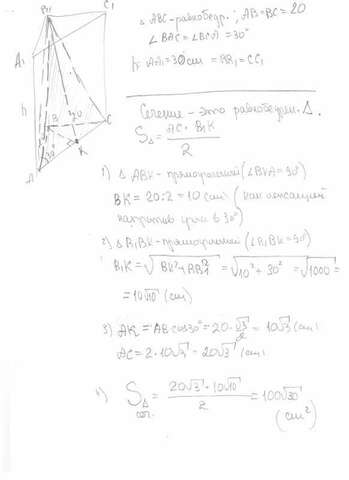 Δ ABC - равнобедр.; AB=BC=20
∠BAC = ∠BCA = 30°
h: AA₁ = 30 cm = BB₁ = CC₁
Сечение - это равнобедрен. Δ.
S_Δ = AC · B₁K / 2
1) Δ ABK - прямоугольный (∠BKA = 90°)
BK = 20:2 = 10 cm (как лежащий
напротив угла в 30°)
2) Δ B₁BK - прямоугольный (∠B₁BK = 90°)
B₁K = √BK² + BB₁² = √10² + 30² = √1000 =
= 10√10 (cm)
3) AK = AB cos30° = 20 · √3/2 = 10√3 (cm)
AC = 2 · 10√3 = 20√3 (cm)
4) S_Δ сеч. = 20√3 · 10√10 / 2 = 100√30 (cm²)
B₁
C₁
A₁
h
B
C
K
A